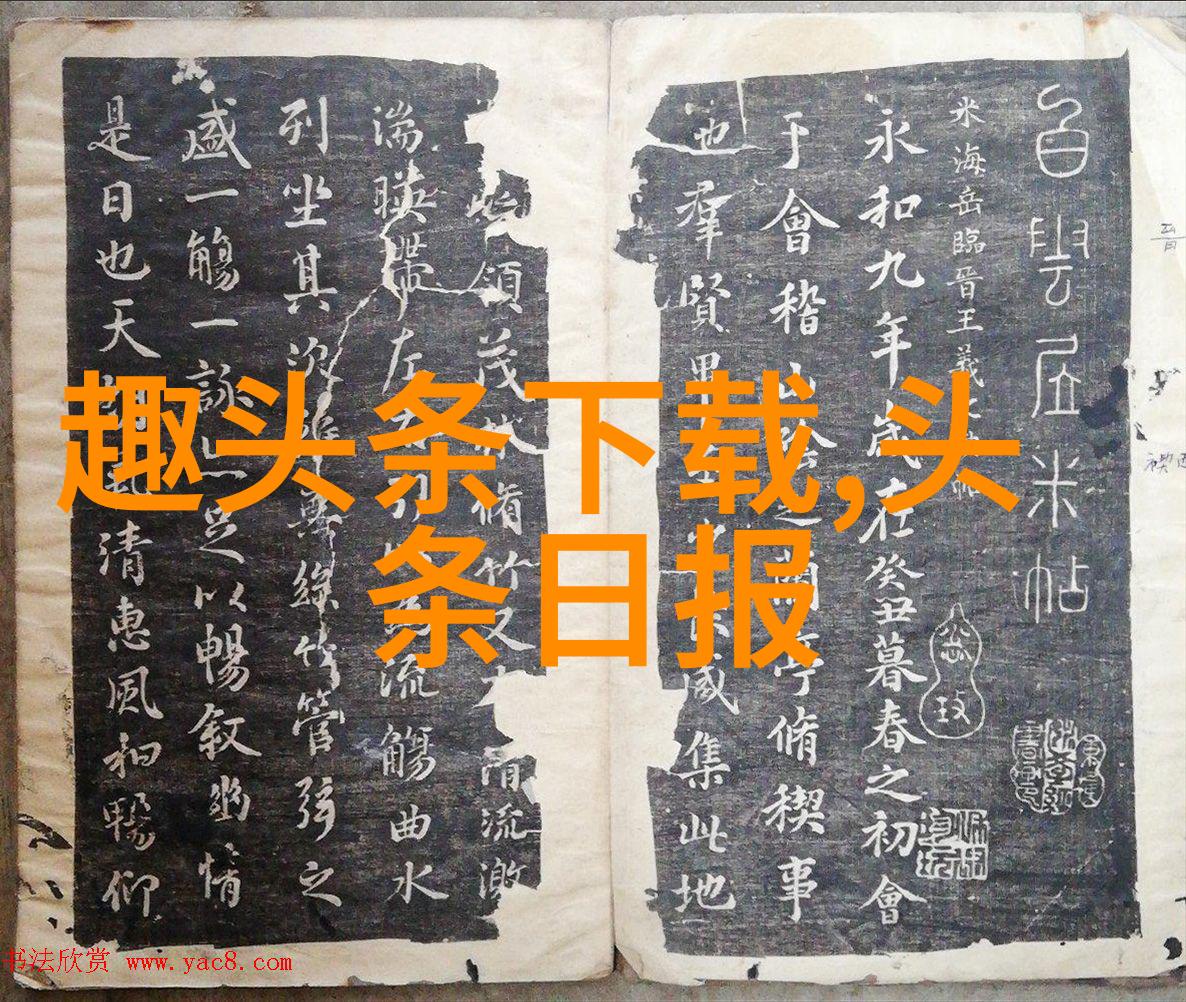 白雲居米帖
米海岳臨晉王羲
永和九年歲在癸丑暮春之初會
于會稽山陰之蘭亭脩稧事
也羣賢畢至少長咸集此地
領茂林脩竹又有清流激
湍暎帶左右引以為流觴曲水
列坐其次雖無絲竹管弦之
盛一觴一詠亦足以暢敘幽情
是日也天朗氣清惠風和暢仰
趣头条下载,头
条日报
书法欣赏 www.yac8.com